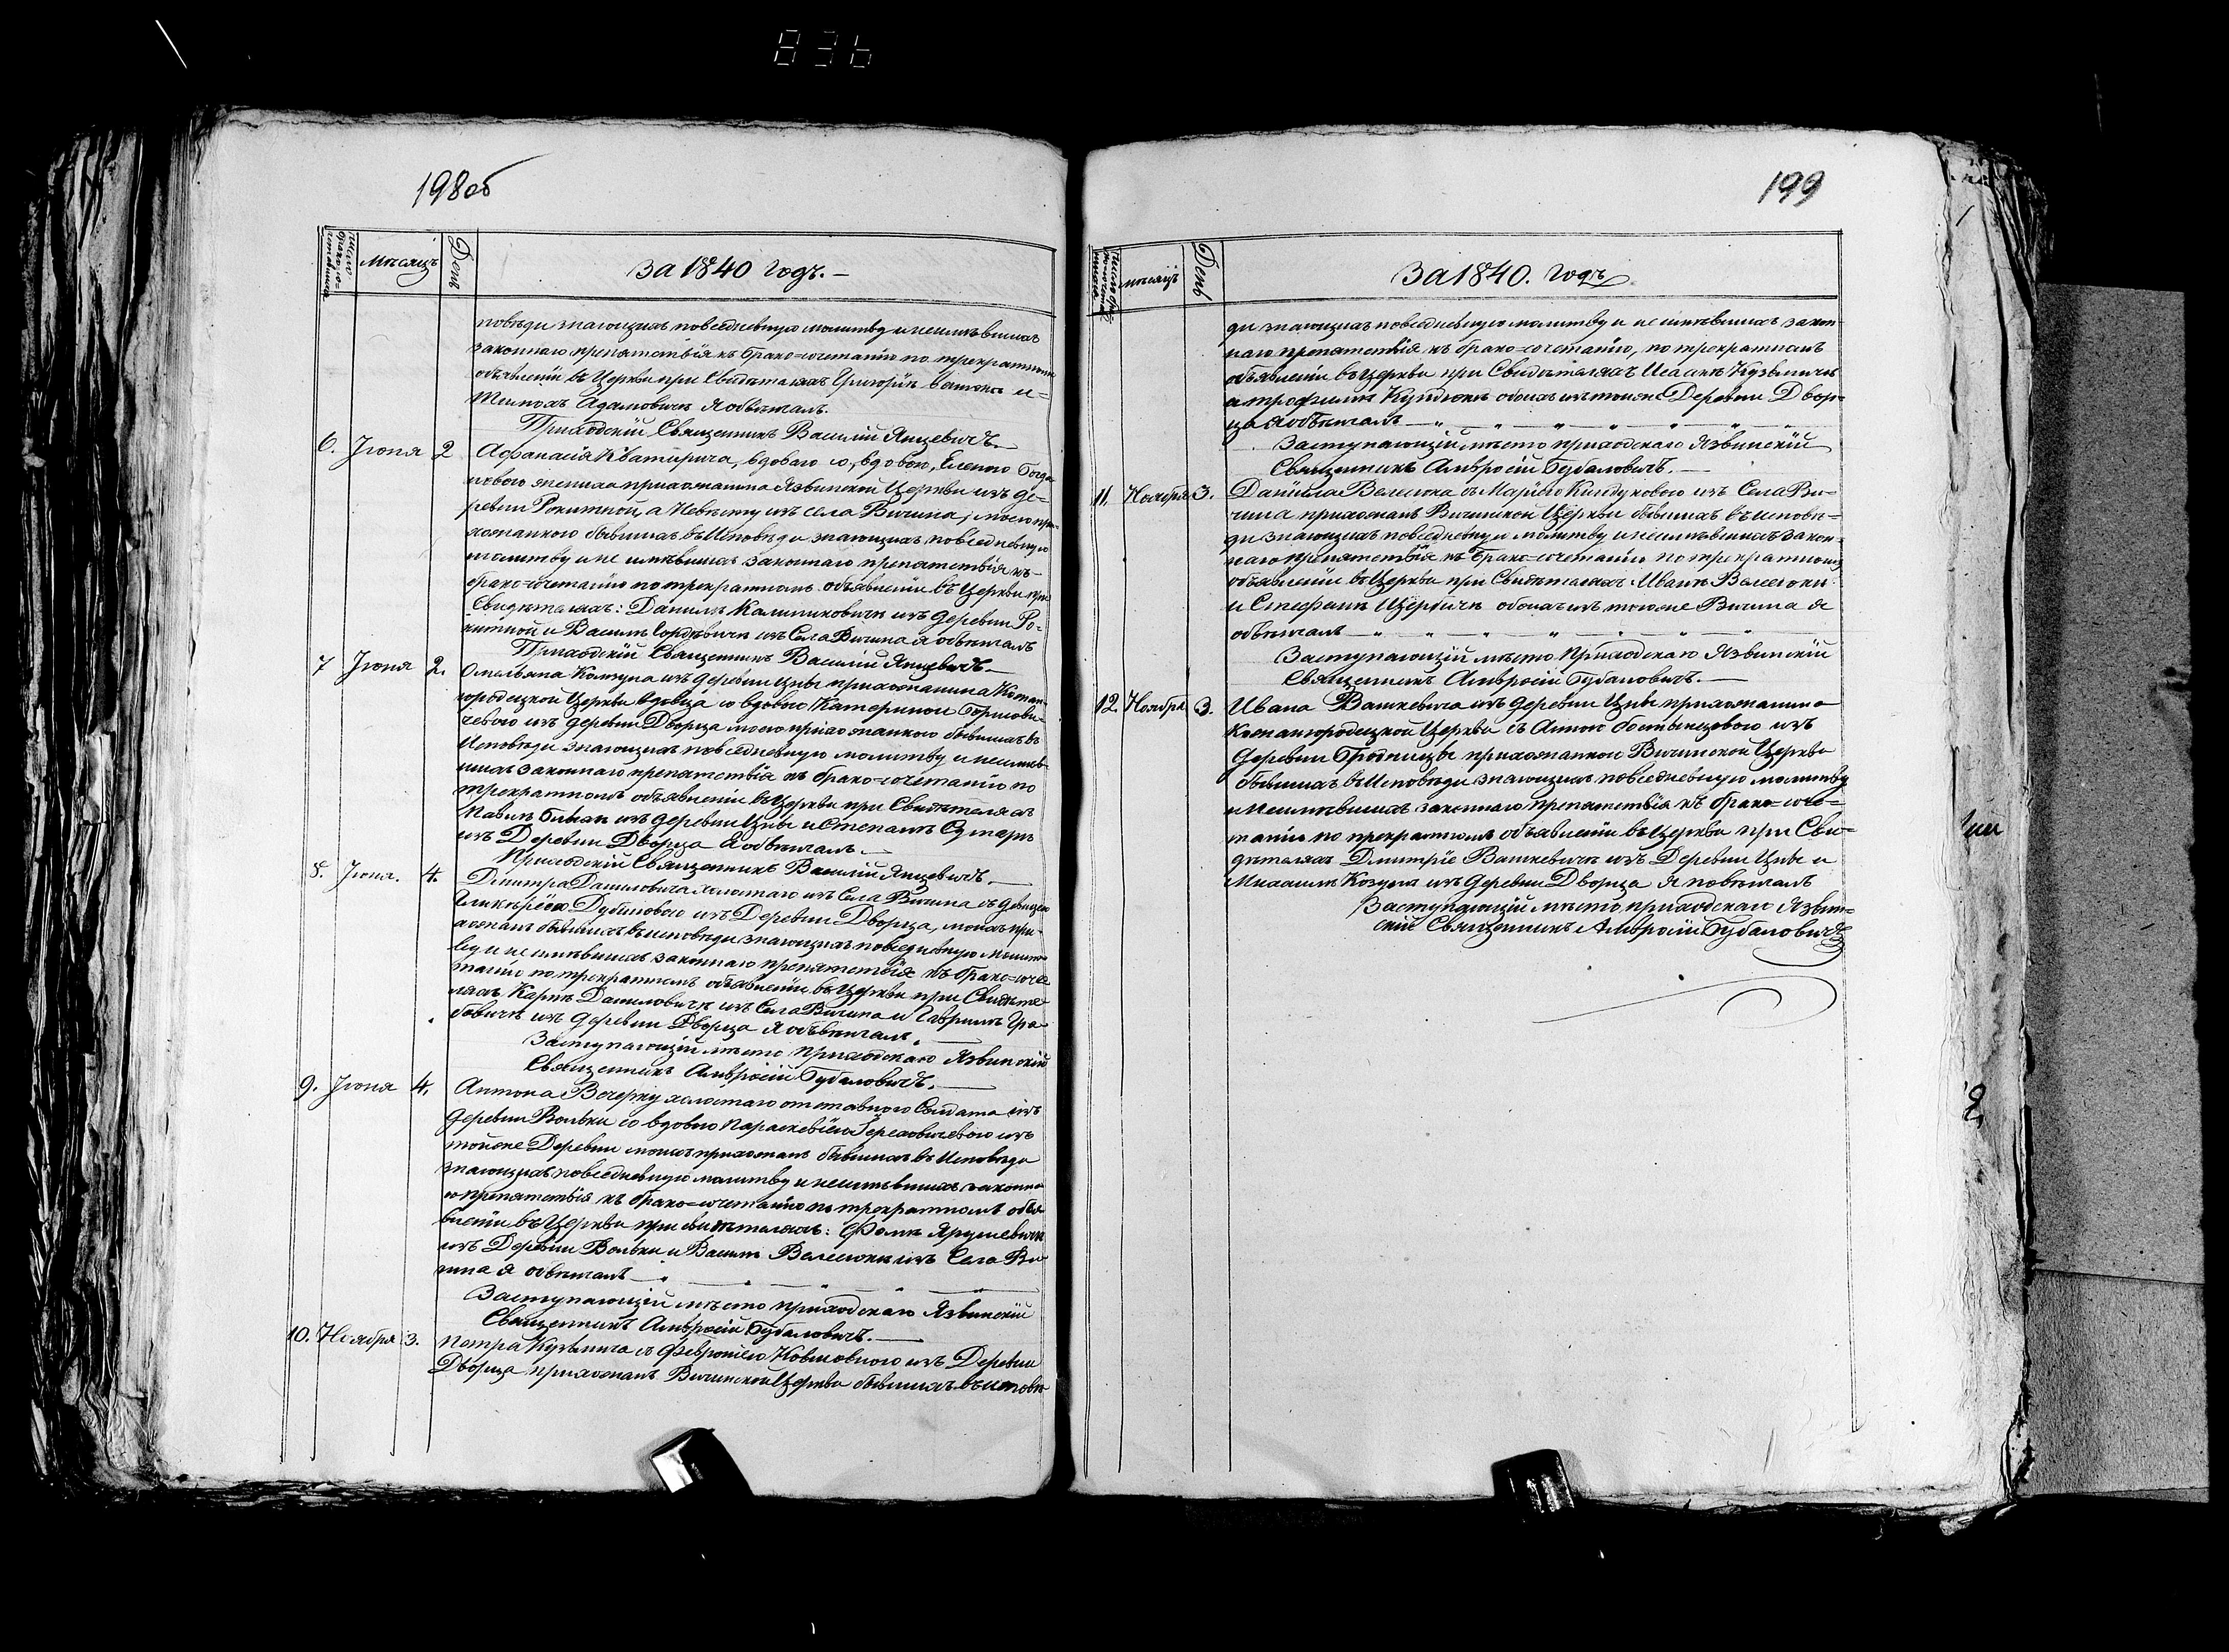 836
198об
Мѣсяцъ
День
За 1840 годъ. —
повѣди знающихъ повседневную молитву и неимѣвшихъ
законнаго препятствія къ брако=сочетанію по трекратномъ
объявленіи въ Церкви при Свидѣтеляхъ Григоріи и=
Адамовичѣ Я обвѣнчалъ.
Приходскій Священникъ Василій Янцевичъ.—
6. Іюня 2
Афанасія Кватирича, вдоваго со вдовою, Еленою Богда
новою жениха прихожанина Язвинской Церкви изъ де=
ревни Рокитной, а Невѣсту изъ села Вичина, моею при=
хожанкою бывшихъ въ Исповѣди знающихъ повседневную
молитву и не имѣвшихъ законнаго препятствія къ=
брако=сочетанію по трекратномъ объявленіи въ Церкви при
Свидѣтеляхъ: Данилѣ Калинковичѣ изъ деревни Ро=
китной и Василѣ Гордѣевичѣ изъ Села Вичина я обвѣнчалъ
Приходскій Священникъ Василій Янцевичъ.—
7 Іюня 2.
Омельяна Колтуна изъ деревни Цны прихожанина Кожан
городецкой Церкви вдовца со вдовою Катериною
чевою изъ деревни Дворца моею прихожанкою бывшихъ въ
Исповѣди знающихъ повседневную молитву и неимѣв=
шихъ законнаго препятствія къ брако=сочетанію по
трекратномъ объявленіи въ Церкви при Свидѣтеляхъ
Павлѣ изъ деревни Цны и Степанѣ
изъ Деревни Дворца Я обвѣнчалъ.—
Приходскій Священникъ Василій Янцевичъ.—
8. Іюня. 4.
Дмитра Даниловича холостаго изъ Села Вичина съ девицею
Гликѣріею Дубиновою изъ Деревни Дворца, моихъ при=
хожанъ бывшихъ въ исповѣди знающихъ повседневную молит
ву и не имѣвшихъ законнаго препятствія къ брако=соче
танію по трекратномъ объявленіи въ Церкви при Свидѣте
ляхъ Карпѣ Даниловичѣ изъ Села Вичина и Гаврилѣ Гра
бовичѣ изъ деревни Дворца Я обвѣнчалъ.
Заступающій мѣсто приходскаго Язвинскій
Священникъ Амвросій Губаловичъ.—
9. Іюня 4.
Антона Вечерку холостаго отставного Солдата изъ
деревни Вольки со вдовою Параскевіею Тереховичевою изъ
тойже Деревни моихъ прихожанъ бывшихъ въ Исповѣди
знающихъ повседневную молитву и неимѣвшихъ законна
го препятствія къ брако=сочетанію по трекратномъ объя
вленіи въ Церкви при свидѣтеляхъ: Фомѣ Ярушевичѣ
изъ Деревни Вольки и Василѣ Велесюкѣ изъ Села Ви
чина Я обвѣнчалъ—
Заступающій мѣсто приходскаго Язвинскій
Священникъ Амвросій Губаловичъ.—
10. Ноября 3.
Петра Кузьмича съ Февроніею Ковшовною изъ Деревни
Дворца прихожанъ Вичинской Церкви бывшихъ въ исповѣ
199
мѣсяцъ
День
За 1840. годъ
ди знающихъ повседневную молитву и не имѣвшихъ закон=
наго препятствія къ брако=сочетанію, по трекратномъ
объявленіи въ Церкви при Свидѣтеляхъ Исаакѣ Кузьмичѣ
и Трофимѣ Кундюкѣ обоихъ изъ тойже Деревни Двор=
ца Я обвѣнчалъ—
Заступающій мѣсто приходскаго Язвинскій
Священникъ Амвросій Губаловичъ.—
11. Ноября 3.
Даніила Велесюка съ Маріею Киндуковою изъ Села Ви=
чина прихожанъ Вичинской Церкви бывшихъ въ исповѣ=
ди знающихъ повседневную молитву и неимѣвшихъ закон=
наго препятствія къ брако=сочетанію по трекратномъ
объявленіи въ Церкви при Свидѣтеляхъ Иванѣ Велесюкѣ
и Стефанѣ Цербичѣ обоихъ изъ тогоже Вичина я
обвѣнчалъ—
Заступающій мѣсто Приходскаго Язвинскій
Священникъ Амвросій Губаловичъ.—
12. Ноября 3.
Ивана Вашкевича изъ деревни Цны прихожанина
Кожангородецкой Церкви съ Анною изъ
деревни Бродницы прихожанкою Вичинской Церкви
бывшихъ въ Исповѣди знающихъ повседневную молитву
и Неимѣвшихъ законнаго препятствія къ брако=соче=
танію по трекратномъ объявленіи въ Церкви при Сви=
дѣтеляхъ Дмитріе Вашкевичѣ изъ Деревни Цны и
Михаилѣ Козулѣ изъ деревни Дворца Я повѣнчалъ
Заступающій мѣсто приходскаго Язвин=
скій Священникъ Амвросій Губаловичъ